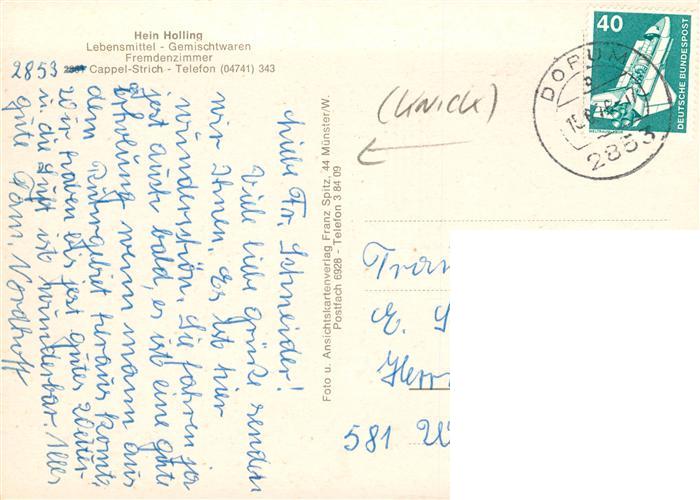 Hein Holling
Lebensmittel - Gemischtwaren
Fremdenzimmer
2853 Cappel-Strich - Telefon (04741) 343
Liebe Fr. Schneider!
Viele liebe Grüße senden
wir Ihnen. Es ist hier
wunderschön. Sie fahren ja
jest auch bald, es ist eine gute
Erholung wenn mann aus
dem Ruhrgebiet heraus kommt.
Wir haben bis jest gutes Wetter
u. die Luft ist wunderbar. Alles
gute Fam. Nordhoff
Foto u. Ansichtskartenverlag Franz Spitz, 44 Münster/W.
Postfach 6928 - Telefon 3 84 09
(Knick)
40
DEUTSCHE BUNDESPOST
DORUM
2853
E. S
Herr
581 W